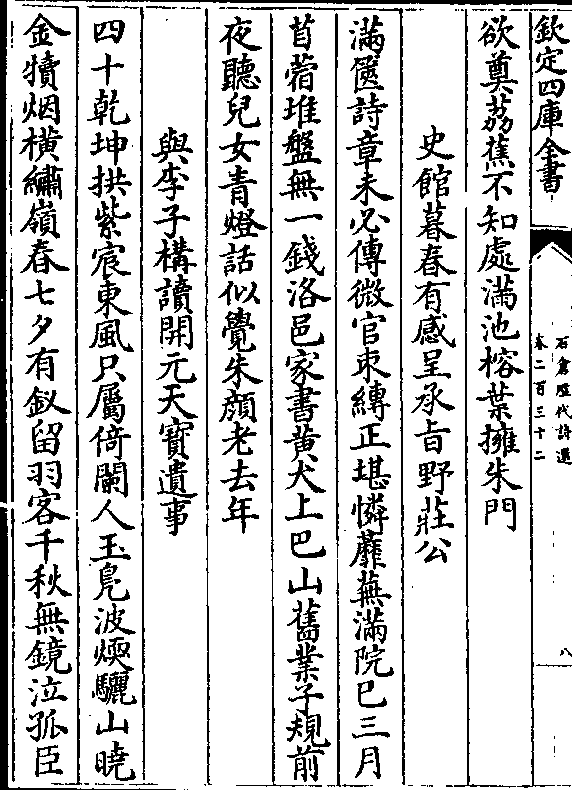 欽定四庫全書
石倉歷代詩選
卷二百三十二
八
欲奠荔蕉不知處滿池榕葉擁朱門
史館暮春有感呈承旨野莊公
滿篋詩章未必傳微官束縛正堪憐蘼蕪滿院已三月
苜蓿堆盤無一錢洛邑家書黃犬上巴山舊業子規前
夜聽兒女青燈話似覺朱顔老去年
與李子構讀開元天寶遺事
四十乾坤拱紫宸東風只屬倚闌人玉鳬波煗驪山曉
金犢烟橫繡嶺春七夕有釵留羽客千秋無鏡泣孤臣